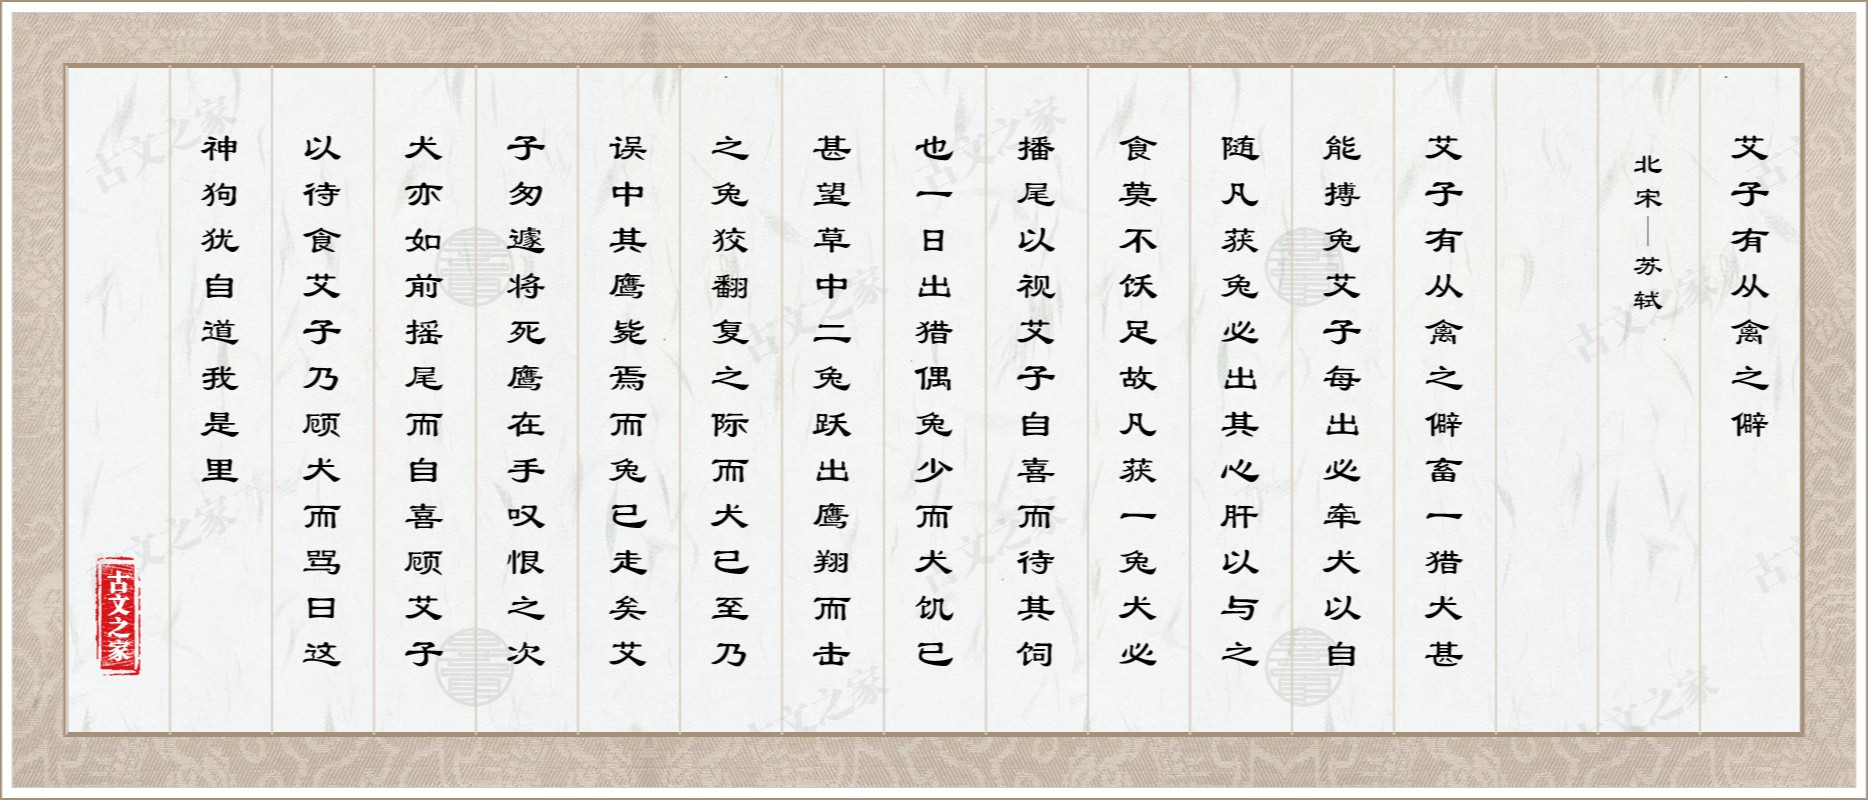 艾子有从禽之僻
北宋—苏轼
艾子有从禽之僻畜一猎犬甚
能搏兔艾子每出必牵犬以自
随凡获兔必出其心肝以与之
食莫不饫足故凡获一兔犬必
播尾以视艾子自喜而待其饲
也一日出猎偶兔少而犬饥已
甚望草中二兔跃出鹰翔而击
之兔狡翻复之际而犬已至乃
误中其鹰毙焉而兔已走矣艾
子匆遽将死鹰在手叹恨之次
犬亦如前摇尾而自喜顾艾子
以待食艾子乃顾犬而骂曰这
神狗犹自道我是里
古文之家